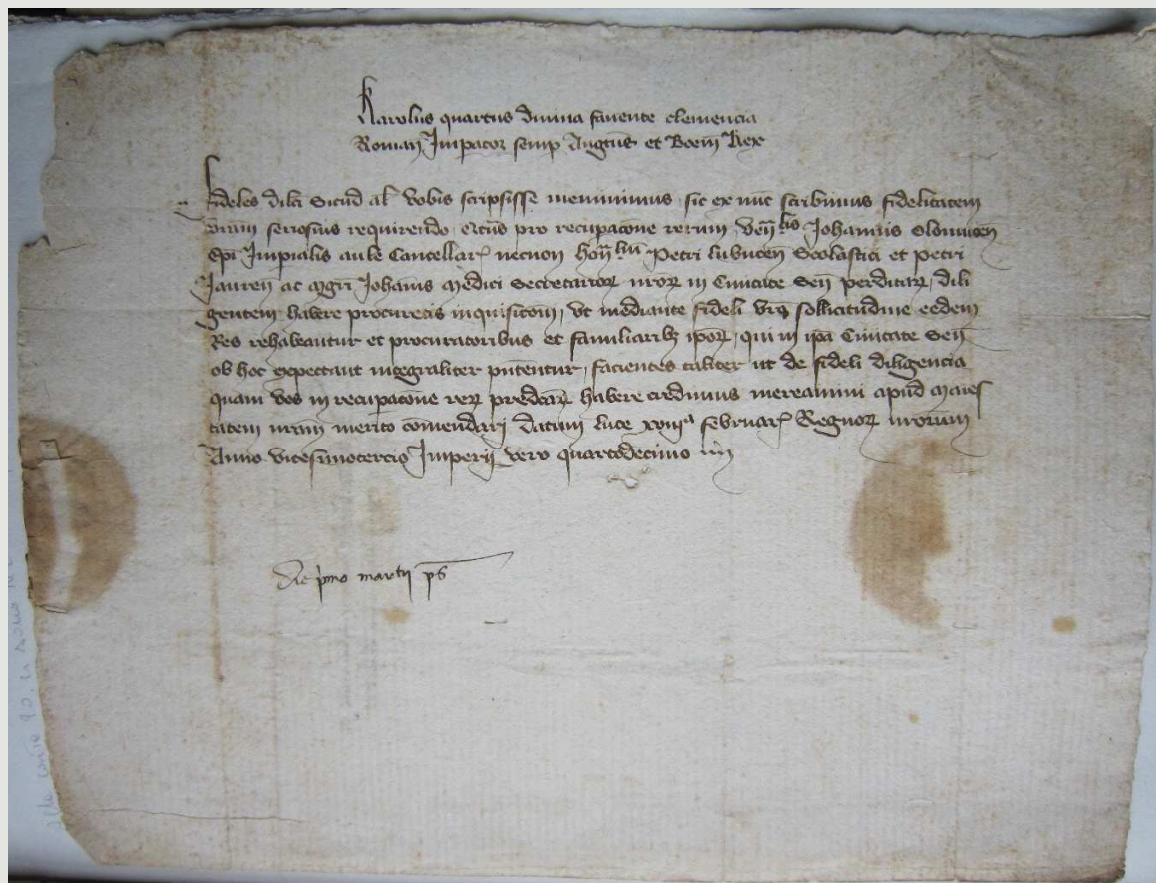 Karolus quartus diuina fauente clemencia
Roman Impator semp Augus et Boem Rex
fideles dilci Sicud al vobis scripsisse meminimus sic ex nuc scribimus fidelitatem
vram seriosius requirendo pro recupacone rerum Venlis Johannis Olomucen
Epi Impialis aule Cancellar necnon honlium Petri lubucen Scolastici et petri
Jauren ac mgri Johanis medici Secretarior nror in Ciuitate Sen perditar, dili
gentem habere procuretis inquisicom, vt mediante fideli vra sollicitudine eedem
Res rehabeantur et procuratoribus et familiarib ipor, qui in ipa Ciuitate Sen
ob hoc expectant integraliter pntentur, facientes taliter ut de fideli diligencia
quam vos in recupacone rer predcar habere credimus mereamini apud maies
tatem nram merito comendarj datum luce xviiia februar Regnor nrorum
Anno vicesimotercio Imperij vero quartodecimo
die pmo martij ps